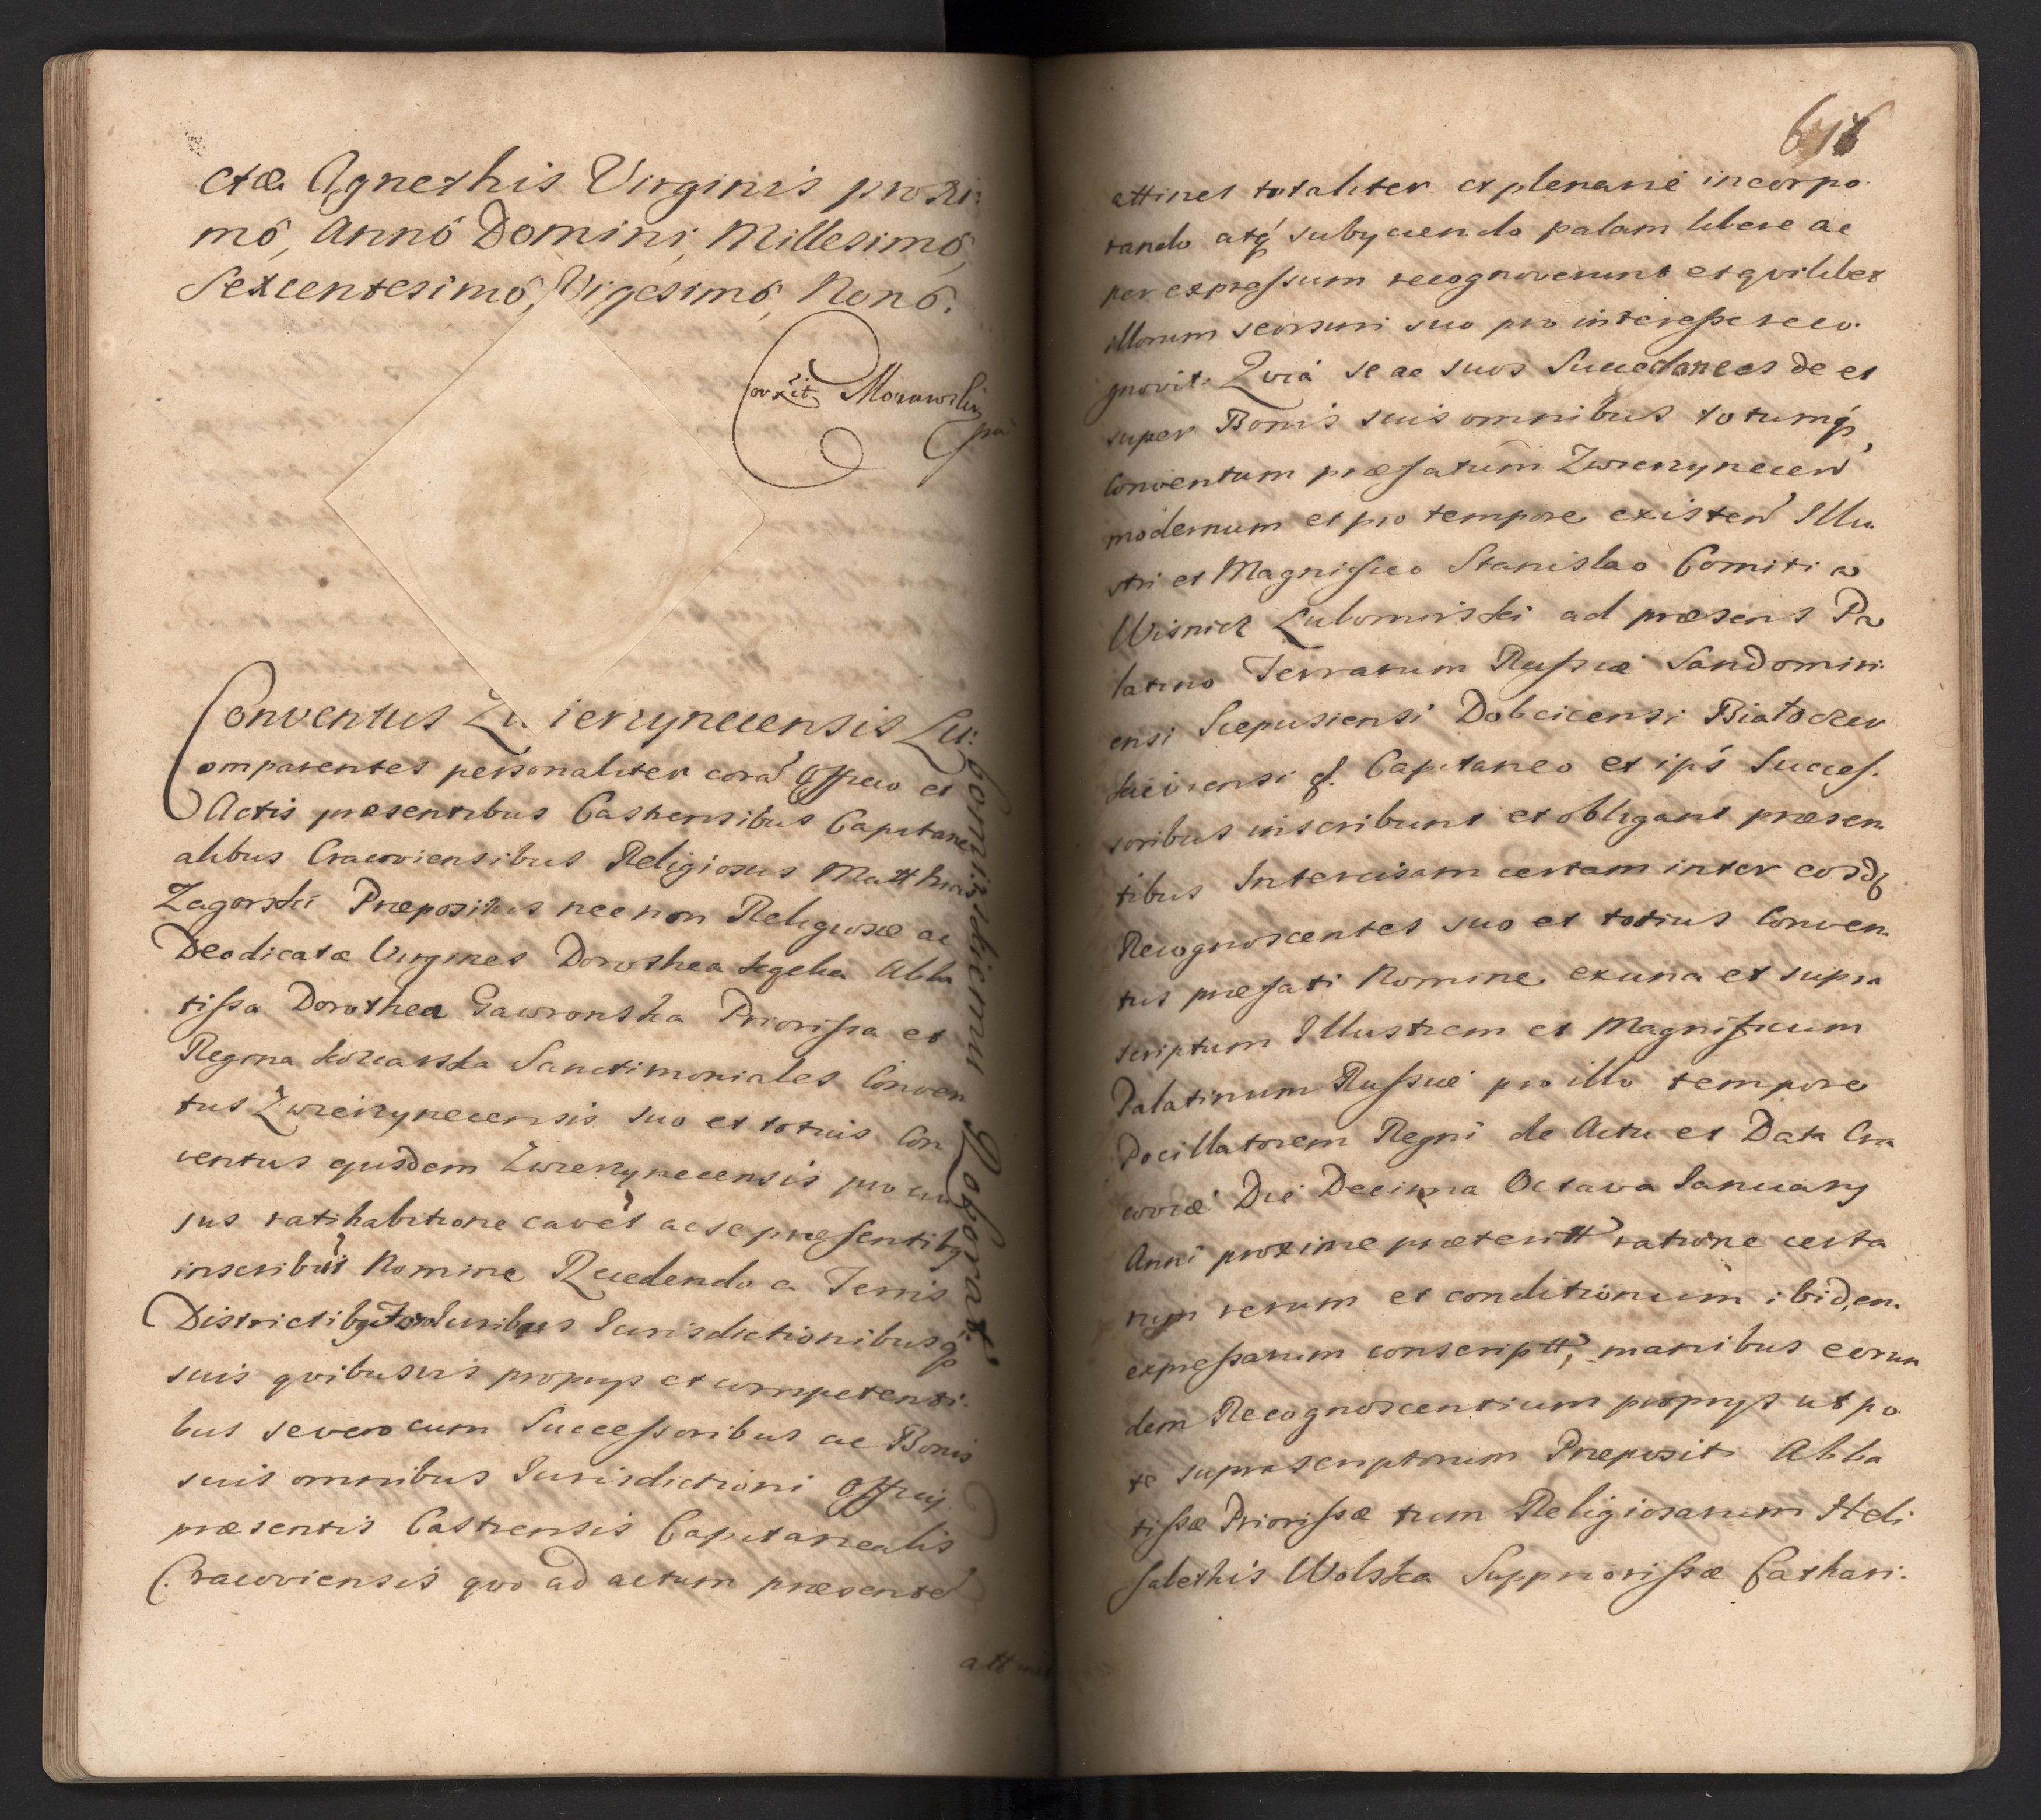 ctæ Agnethis Virginis proxi:
mô, Annô Domini, Millesimô,
Sexcentesimô, Vigesimô, Nonô.
Corxit Morawski
Conventus Zwierzynecensis Lu:
bomirskiemu Roborat.
omparentes personaliter corã Officio et
Actis præsentibus Castrensibus Capitane
alibus Cracoviensibus Religiosus Matthias
Zagorski Præpositus nec non Religiosæ ac
Deodicatæ Virgines Dorothea Abba
tissa Dorothea Gawronska Priorissa et
Regina Sanctimoniales Conven
tus Zwierzynecensis suo et totius Con
ventus ejusdem Zwierzynecensis pro cu
jus ratihabitione cavet ac se præsentibq
inscribit Nomine Recedendo a Terris
Districtibq Jurisdictionibusq
suis qvibusvis proprys et competenti.
bus se vero cum Successoribus ac Bonis
suis omnibus Jurisdictioni Officij
præsentis Castrensis Capitanealis
Cracoviensis qvo ad actum præsente
att
attinet totaliter et plenarie incorpo.
rando atq subyciendo palam libere ac
per expressum recognoverunt et qvilibet
illorum seorsim suo pro interesse reco.
gnovit. Qvia se ac suos Succedaneos de et
super Bonis suis omnibus totumq,
Conventum præfatum Zwierzynecen
modernum et pro tempore existen Illu
stri et Magnifico Stanislao Comiti a
Wisnicz Lubomirski ad præsens Pa
latino Terrarum Russiæ Sandomiri
ensi Scepusiensi Dobcicensi Białocer
kieviensi &. Capitaneo et ips Succes.
soribus inscribunt et obligant præsen
tibus Intercisam certam inter eosd
Recognoscentes suo et totius Conven.
tus præfati Nomine ex una et supra
scriptum Illustrem et Magnificum
Palatinum Russiæ pro illo tempore
Pocillatorem Regni de Actu et Data Cra
coviæ Die Decima Octava January
Anni proxime præteritt ratione certa
rum rerum et conditionum ibidem
expressarum conscriptt, manibus eorun
dem Recognoscentium proprys ut po
te suprascriptorum Præpositi Abba
tissæ Priorissæ tum Religiosarum Heli
sabethis Wolska Suppriorissæ Cathari.